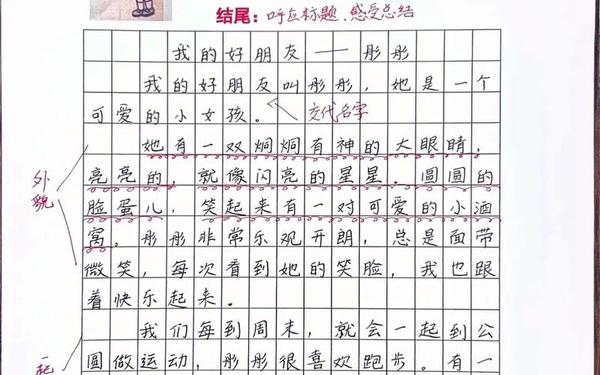 结尾：呼应标题、感受总结
我的好朋友——彤彤
我的好朋友叫彤彤，她是一个
可爱的小女孩。
交代名字
她有一双炯炯有神的大眼睛，
亮亮的，就像闪亮的星星。圆圆的
外貌
脸蛋儿，笑起来有一对可爱的小酒
窝。彤彤非常乐观开朗，总是面带
微笑，每次看到她的笑脸，我也跟
着快乐起来。
我们每到周末，就会一起到公
圆做运动，彤彤很喜欢跑步。有一
一起